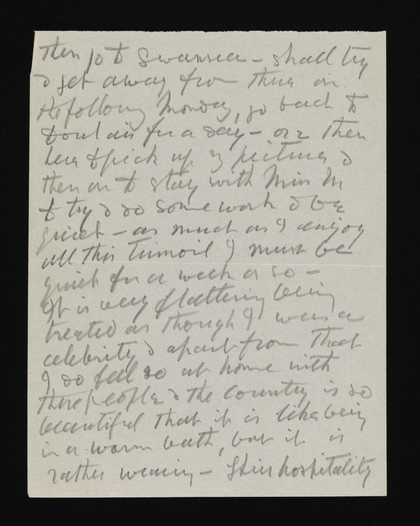 then go to Swansea – shall try
& get away from there on
the following Monday, go back to
for a day – or 2 then
& pick up my pictures &
then on to stay with Miss M
& try & do some work & be
quiet – as much as I enjoy
all this turmoil I must be
quiet for a week or so –
It is very flattering being
treated as though I were a
celebrity & apart from that
I do feel so at home with
these people & the country is so
beautiful that it is like being
in a warm bath, but it is
rather wearing – hospitality